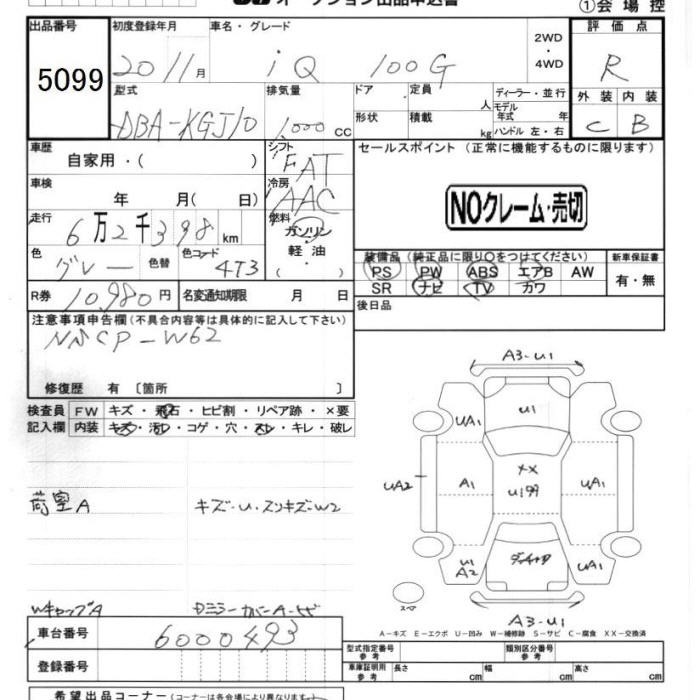 オークション出品申込書
①会場控
出品番号
5099
初度登録年月
20 11月
車名・グレード
iQ 100G
2WD
・
4WD
評価点
R
外装 内装
C B
型式
DBA-KGJ10
排気量
1,000 CC
ドア
・定員
人
形状
積載
kg
ディーラー・並行
モデル
年式 年
ハンドル 左・右
車歴
自家用・( )
シフト
FAT
セールスポイント (正常に機能するものに限ります)
NOクレーム・売切
車検
年 月( 日)
冷房
AAC
走行
6万2千398km
燃料
ガソリン
軽・油
( )
色
グレー
色替
色コード
4T3
装備品 (純正品に限り○をつけてください)
PS PW ABS エアB AW
SR ナビ TV カワ
新車保証書
有・無
R券 10,980円
名変通知期限 月 日
後日品
注意事項申告欄(不具合内容等は具体的に記入して下さい)
NSCP-W62
修復歴 有〔箇所 〕
検査員 FW キズ・飛石・ヒビ割・リペア跡・×要
記入欄 内装 キズ・汚レ・コゲ・穴・スレ・キレ・破レ
荷室A
キズ-U・スリキズ-W2
WキャップA
DミラーカバーA
A3-U1
U1
UA1
UA2
A1
××
U199
UA1
U1
A2
UA1
スペア
A3-U1
A-キズ E-エクボ U-凹み W-補修跡 S-サビ C-腐食 XX-交換済
車台番号
6000493
登録番号
型式指定番号
参考
類別区分番号
参考
車庫証明用
参考
長さ cm
幅 cm
高さ cm
希望出品コーナー(コーナーは各会場により異なります)